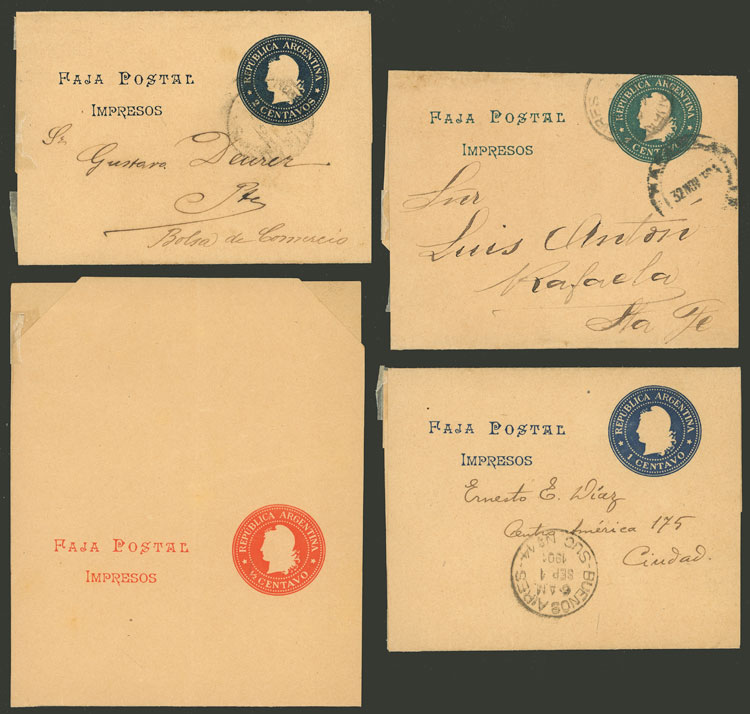 FAJA POSTAL
IMPRESOS
REPUBLICA ARGENTINA
2 CENTAVOS
Sr
Gustavo Deurer
Pte
Bolsa de Comercio
FAJA POSTAL
IMPRESOS
REPUBLICA ARGENTINA
Luis Antón
Rafaela
Sta Fe
FAJA POSTAL
IMPRESOS
REPUBLICA ARGENTINA
½ CENTAVO
FAJA POSTAL
IMPRESOS
REPUBLICA ARGENTINA
1 CENTAVO
Ernesto E. Díaz
Centro América 175
Ciudad.
BUENOS AIRES
6 A.M.
SEP 4
1901